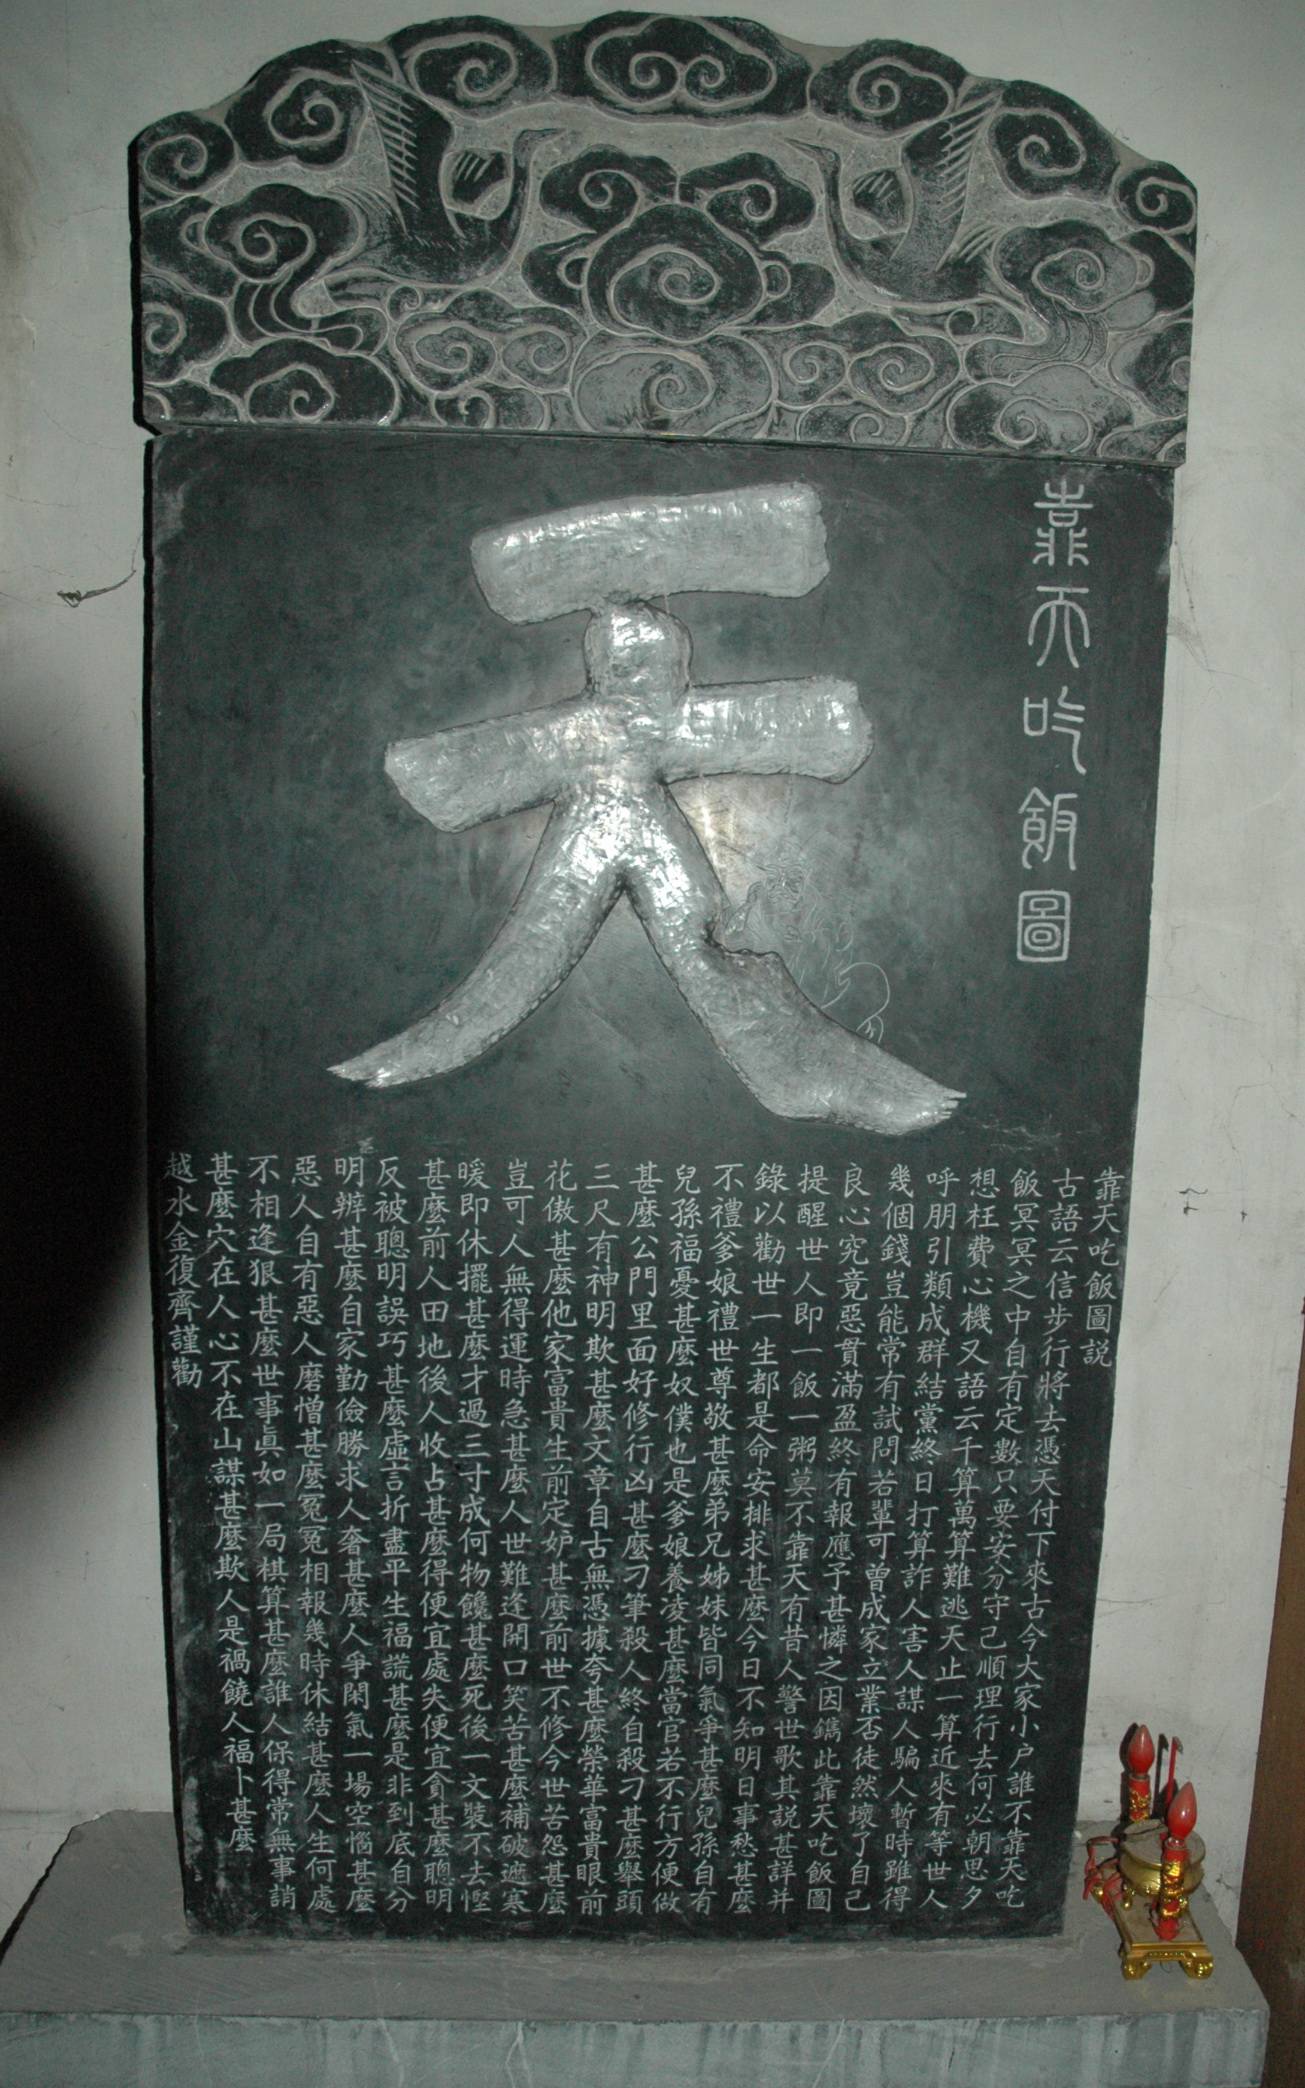 靠天吃飯圖
天
靠天吃飯圖説
古語云信步行將去憑天付下來古今大家小户誰不靠天吃
飯冥冥之中自有定數只要安分守己順理行去何必朝思夕
想枉費心機又語云千算萬算難逃天止一算近來有等世人
呼朋引類成群結黨終日打算詐人害人謀人騙人暫時雖得
幾個錢豈能常有試問若輩可曾成家立業否徒然壞了自己
良心究竟惡貫滿盈終有報應予甚憐之因鐫此靠天吃飯圖
提醒世人即一飯一粥莫不靠天有昔人警世歌其説甚詳并
錄以勸世一生都是命安排求甚麼今日不知明日事愁甚麼
不禮爹娘禮世尊敬甚麼弟兄姊妹皆同氣爭甚麼兒孫自有
兒孫福憂甚麼奴僕也是爹娘養凌甚麼當官若不行方便做
甚麼公門里面好修行凶甚麼刁筆殺人終自殺刁甚麼舉頭
三尺有神明欺甚麼文章自古無憑據夸甚麼榮華富貴眼前
花傲甚麼他家富貴生前定妒甚麼前世不修今世苦怨甚麼
豈可人無得運時急甚麼人世難逢開口笑苦甚麼補破遮寒
暖即休擺甚麼才過三寸成何物饞甚麼死後一文裝不去慳
甚麼前人田地後人收占甚麼得便宜處失便宜貪甚麼聰明
反被聰明誤巧甚麼虛言折盡平生福謊甚麼是非到底自分
明辨甚麼自家勤儉勝求人奢甚麼人爭閑氣一場空惱甚麼
惡人自有惡人磨憎甚麼冤冤相報幾時休結甚麼人生何處
不相逢狠甚麼世事眞如一局棋算甚麼誰人保得常無事誚
甚麼穴在人心不在山謀甚麼欺人是禍饒人福卜甚麼
越水金復齋謹勸